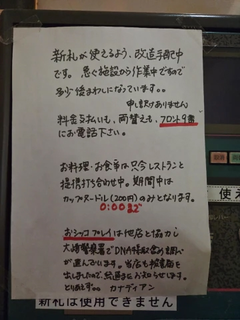 新札が使えるよう、改造手配中
です。急ぐ施設から作業中ですので
多少後まわしになっています。。
申し訳ありません
料金支払いも、両替えも、フロント9番
にお電話下さい。
お料理・お食事は只今レストランと
提携打ち合わせ中。期間中は
カップヌードル(200円)のみとなります。
0:00まで
おシッコプレイは他店と協力し
大崎警察署でDNA採取含め調べが
進んでいます。当店も被害届を
出しましたので、結果またお知らせします。
とりますよ。 カナディアン
使え
新札は使用できません